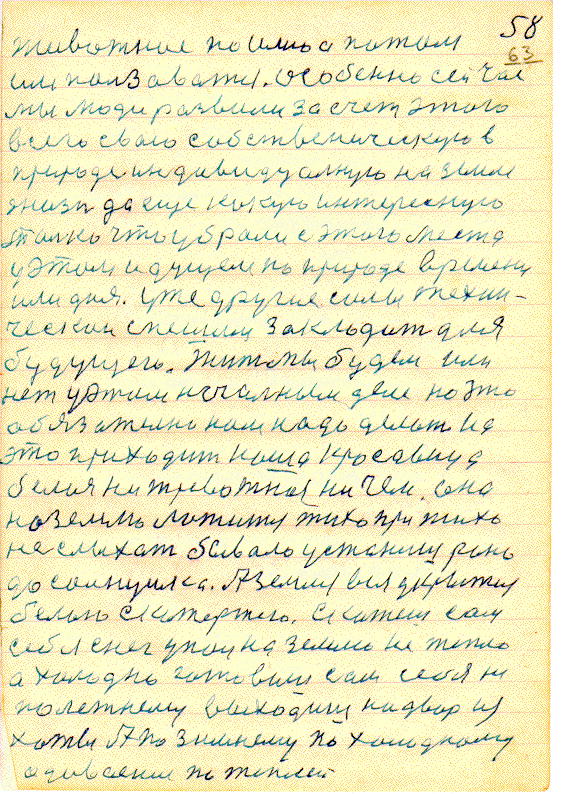 58
63
животное по имю а потом
им ползоватя. Особенно сейчас
мы люди развили за счет этого
всего свою собственическую в
природе индивидуалную на земле
жизн да еще какую интересную
толко что убрали с этого места
у этом идущем по природе времени
или дня. Уже другие силы техни-
ческой спешим закладат для
будущего. Жит мы будем или
нет у этом началным деле но это
обязателно нам надо делат На
это приходит наша красавица
белая ни тревожная ни чем. она
на землю ложится тихо при тихо
не слыхат бывало устаниш рано
до солнушка. А земля вся укрытая
белою скатертю. Скажеш сам
себя снег упал на землю не тепло
а холодно готовили сам себя ни
по летнему выходиш на двор из
хаты А по зимнему по холодному
одиваеш по теплей